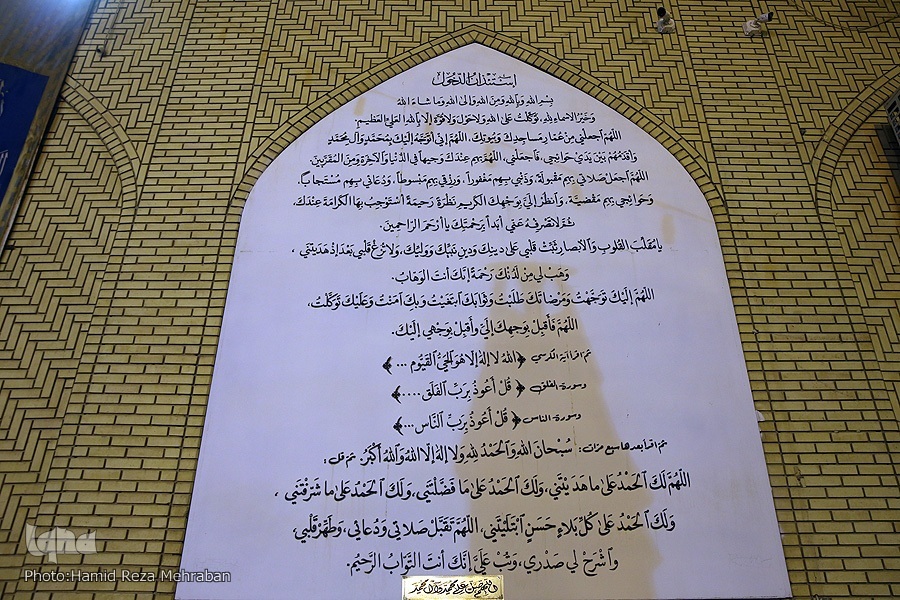 استئذان الدخول
بسم الله وبالله ومن الله والى الله وما شاء الله
وخير الاسماء لله، توكلت على الله ولا حول ولا قوة إلا بالله العلي العظيم.
اللهم اجعلني من عمار مساجدك وبيوتك، اللهم إني أتوجه إليك بمحمد وآل محمد
وأقدمهم بين يدي حوائجي، فاجعلني، اللهم بهم عندك وجيها في الدنيا والآخرة ومن المقربين.
اللهم اجعل صلاتي بهم مقبولة، وذنبي بهم مغفورا، ورزقي بهم مبسوطا، ودعائي بهم مستجابا.
وحوائجي بهم مقضية، وانظر إلي بوجهك الكريم نظرة رحيمة أستوجب بها الكرامة عندك،
ثم لا تصرفه عني أبدا برحمتك يا أرحم الراحمين.
يا مقلب القلوب والأبصار ثبت قلبي على دينك ودين نبيك ووليك، ولا تزغ قلبي بعد إذ هديتني،
وهب لي من لدنك رحمة إنك أنت الوهاب.
اللهم إليك توجهت ومرضاتك طلبت وثوابك ابتغيت وبك آمنت وعليك توكلت،
اللهم فأقبل بوجهك إلي وأقبل بوجهي إليك.
ثم اقرأ آية الكرسي ﴿الله لا إله إلا هو الحي القيوم ...﴾
وسورة الفلق ﴿قل أعوذ برب الفلق ....﴾
وسورة الناس ﴿قل أعوذ برب الناس ...﴾
ثم اقرأ بعدها سبع مرات: سبحان الله والحمد لله ولا إله إلا الله والله أكبر. ثم قل:
اللهم لك الحمد على ما هديتني، ولك الحمد على ما فضلتني، ولك الحمد على ما شرفتني،
ولك الحمد على كل بلاء حسن ابتليتني، اللهم تقبل صلاتي ودعائي، وطهر قلبي،
واشرح لي صدري، وتب علي إنك أنت التواب الرحيم.
على محمد وآل محمد
iqna
Photo:Hamid Reza Mehraban